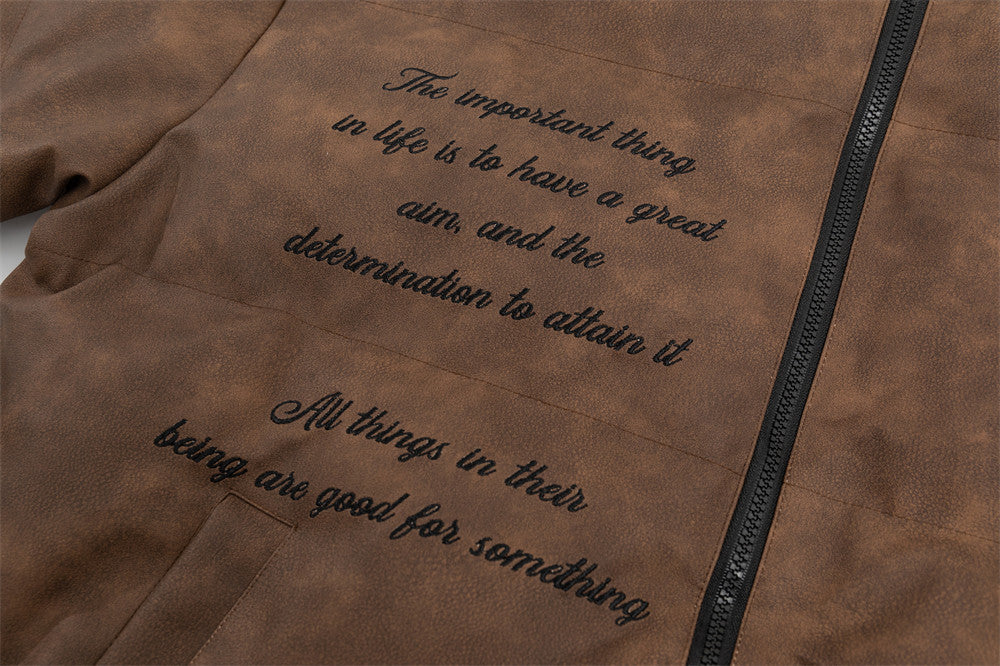 The important thing
in life is to have a great
aim, and the
determination to attain it
All things in their
being are good for something